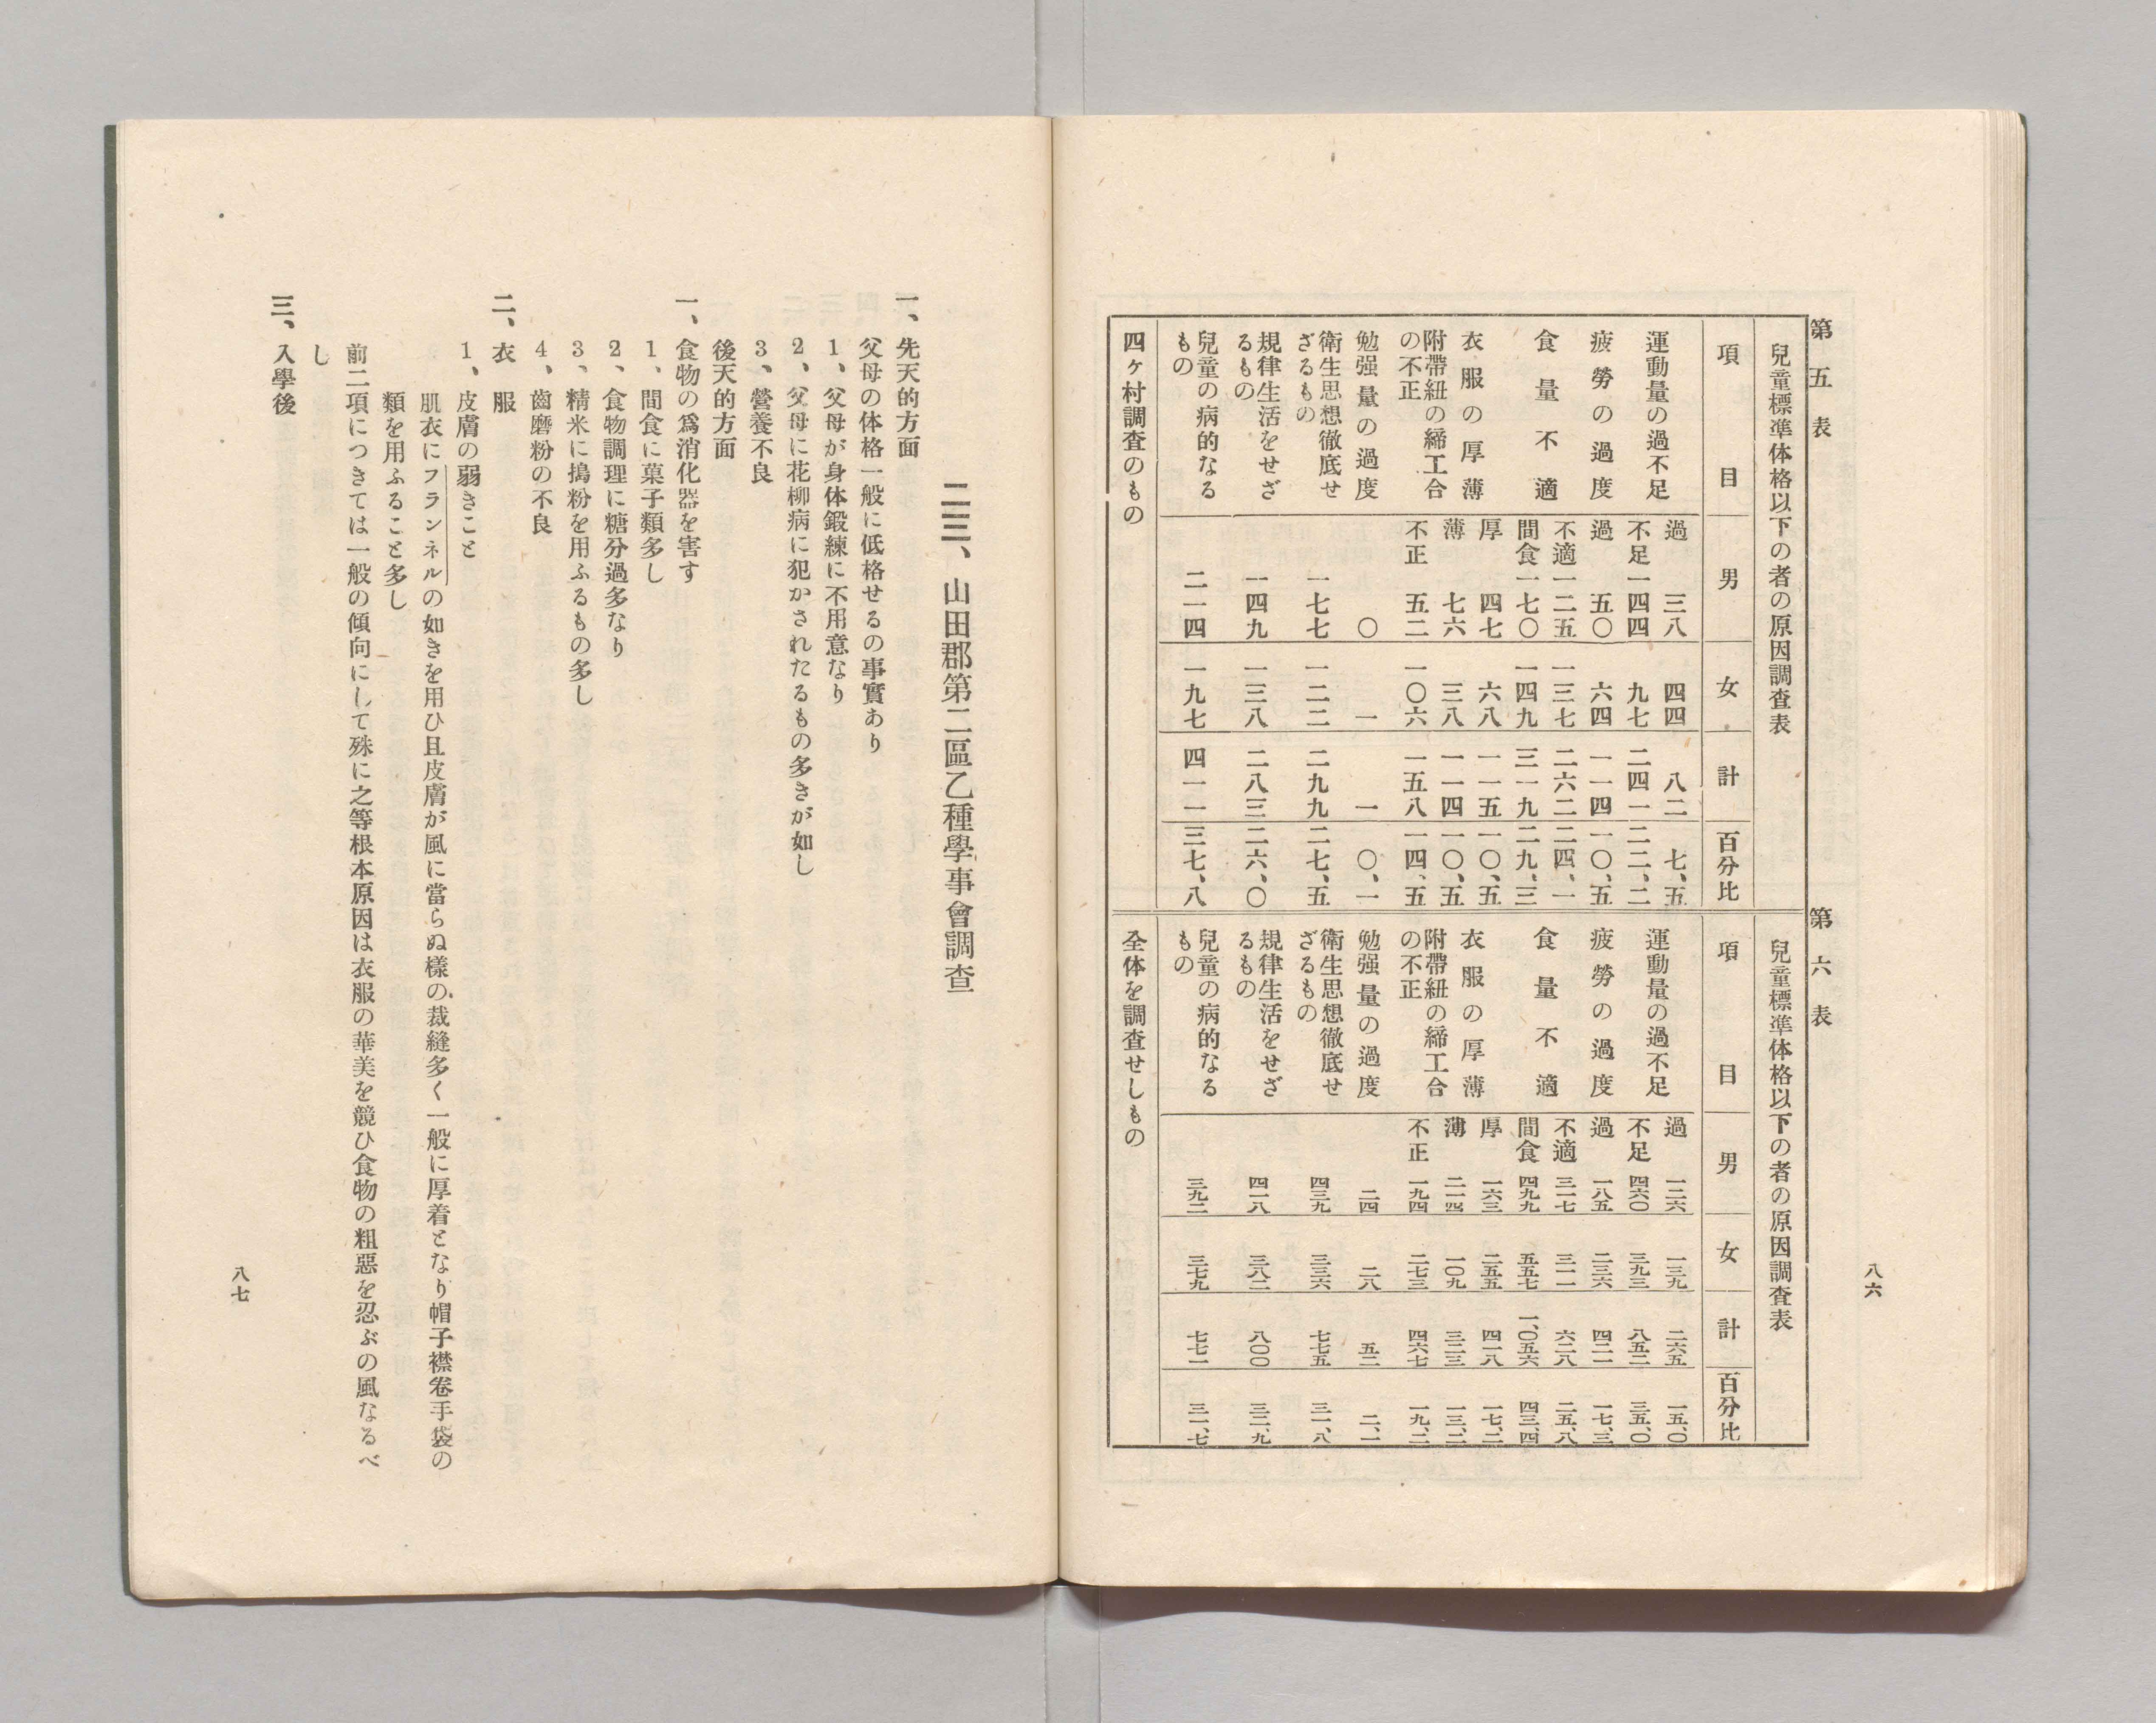 八六
第五表
兒童標準体格以下の者の原因調査表
項目 男 女 計 百分比
運動量の過不足 過 三八 四四 八二 七、五
不足 一四四 九七 二四一 二二、二
疲勞の過度 過 五〇 六四 一一四 一〇、五
食量不適 不適 一二五 一三七 二六二 二四、一
間食 一七〇 一四九 三一九 二九、三
衣服の厚薄 厚 四七 六八 一一五 一〇、五
薄 七六 三八 一一四 一〇、五
附帶紐の締工合の不正 不正 五二 一〇六 一五八 一四、五
勉强量の過度 〇 一 一 〇、一
衛生思想徹底せざるもの 一七七 一二二 二九九 二七、五
規律生活をせざるもの 一四九 一三八 二八三 二六、〇
兒童の病的なるもの 二一四 一九七 四一一 三七、八
四ヶ村調査のもの
第六表
兒童標準体格以下の者の原因調査表
項目 男 女 計 百分比
運動量の過不足 過 一二六 一三九 二六五 一五、〇
不足 四六〇 三九三 八五二 三五、〇
疲勞の過度 過 一八五 二三六 四二一 一七、三
食量不適 不適 三一七 三一一 六二八 二五、八
間食 四九九 五五七 一、〇五六 四三、四
衣服の厚薄 厚 一六三 二五五 四一八 一七、二
薄 二一四 一〇九 三二三 一三、二
附帶紐の締工合の不正 不正 一九四 二七三 四六七 一九、二
勉强量の過度 二四 二八 五二 二、一
衛生思想徹底せざるもの 四三九 三三六 七七五 三一、八
規律生活をせざるもの 四一八 三八二 八〇〇 三二、九
兒童の病的なるもの 三九二 三七九 七七一 三一、七
全体を調査せしもの
二三、山田郡第二區乙種學事會調查
一、先天的方面
父母の体格一般に低格せるの事實あり
1、父母が身体鍛練に不用意なり
2、父母に花柳病に犯かされたるもの多きが如し
3、營養不良
後天的方面
一、食物の爲消化器を害す
1、間食に菓子類多し
2、食物調理に糖分過多なり
3、精米に搗粉を用ふるもの多し
4、齒磨粉の不良
二、衣服
1、皮膚の弱きこと
肌衣にフランネルの如きを用ひ且皮膚が風に當らぬ樣の裁縫多く一般に厚着となり帽子襟卷手袋の
類を用ふること多し
前二項につきては一般の傾向にして殊に之等根本原因は衣服の華美を競ひ食物の粗惡を忍ぶの風なるべ
し
三、入學後
八七